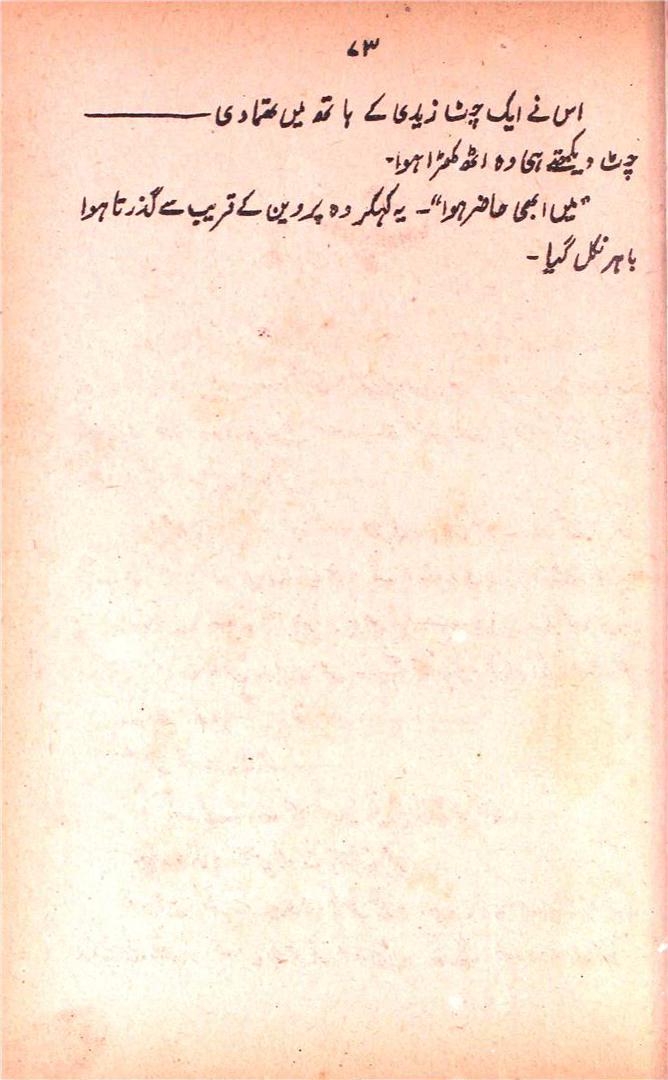 ۷۳
اس نے ایک چٹ زیدی کے ہاتھ میں تھما دی ————
چٹ دیکھتے ہی وہ اٹھ کھڑا ہوا۔
"میں ابھی حاضر ہوا"۔ یہ کہکر وہ پروین کے قریب سے گذرتا ہوا
باہر نکل گیا۔